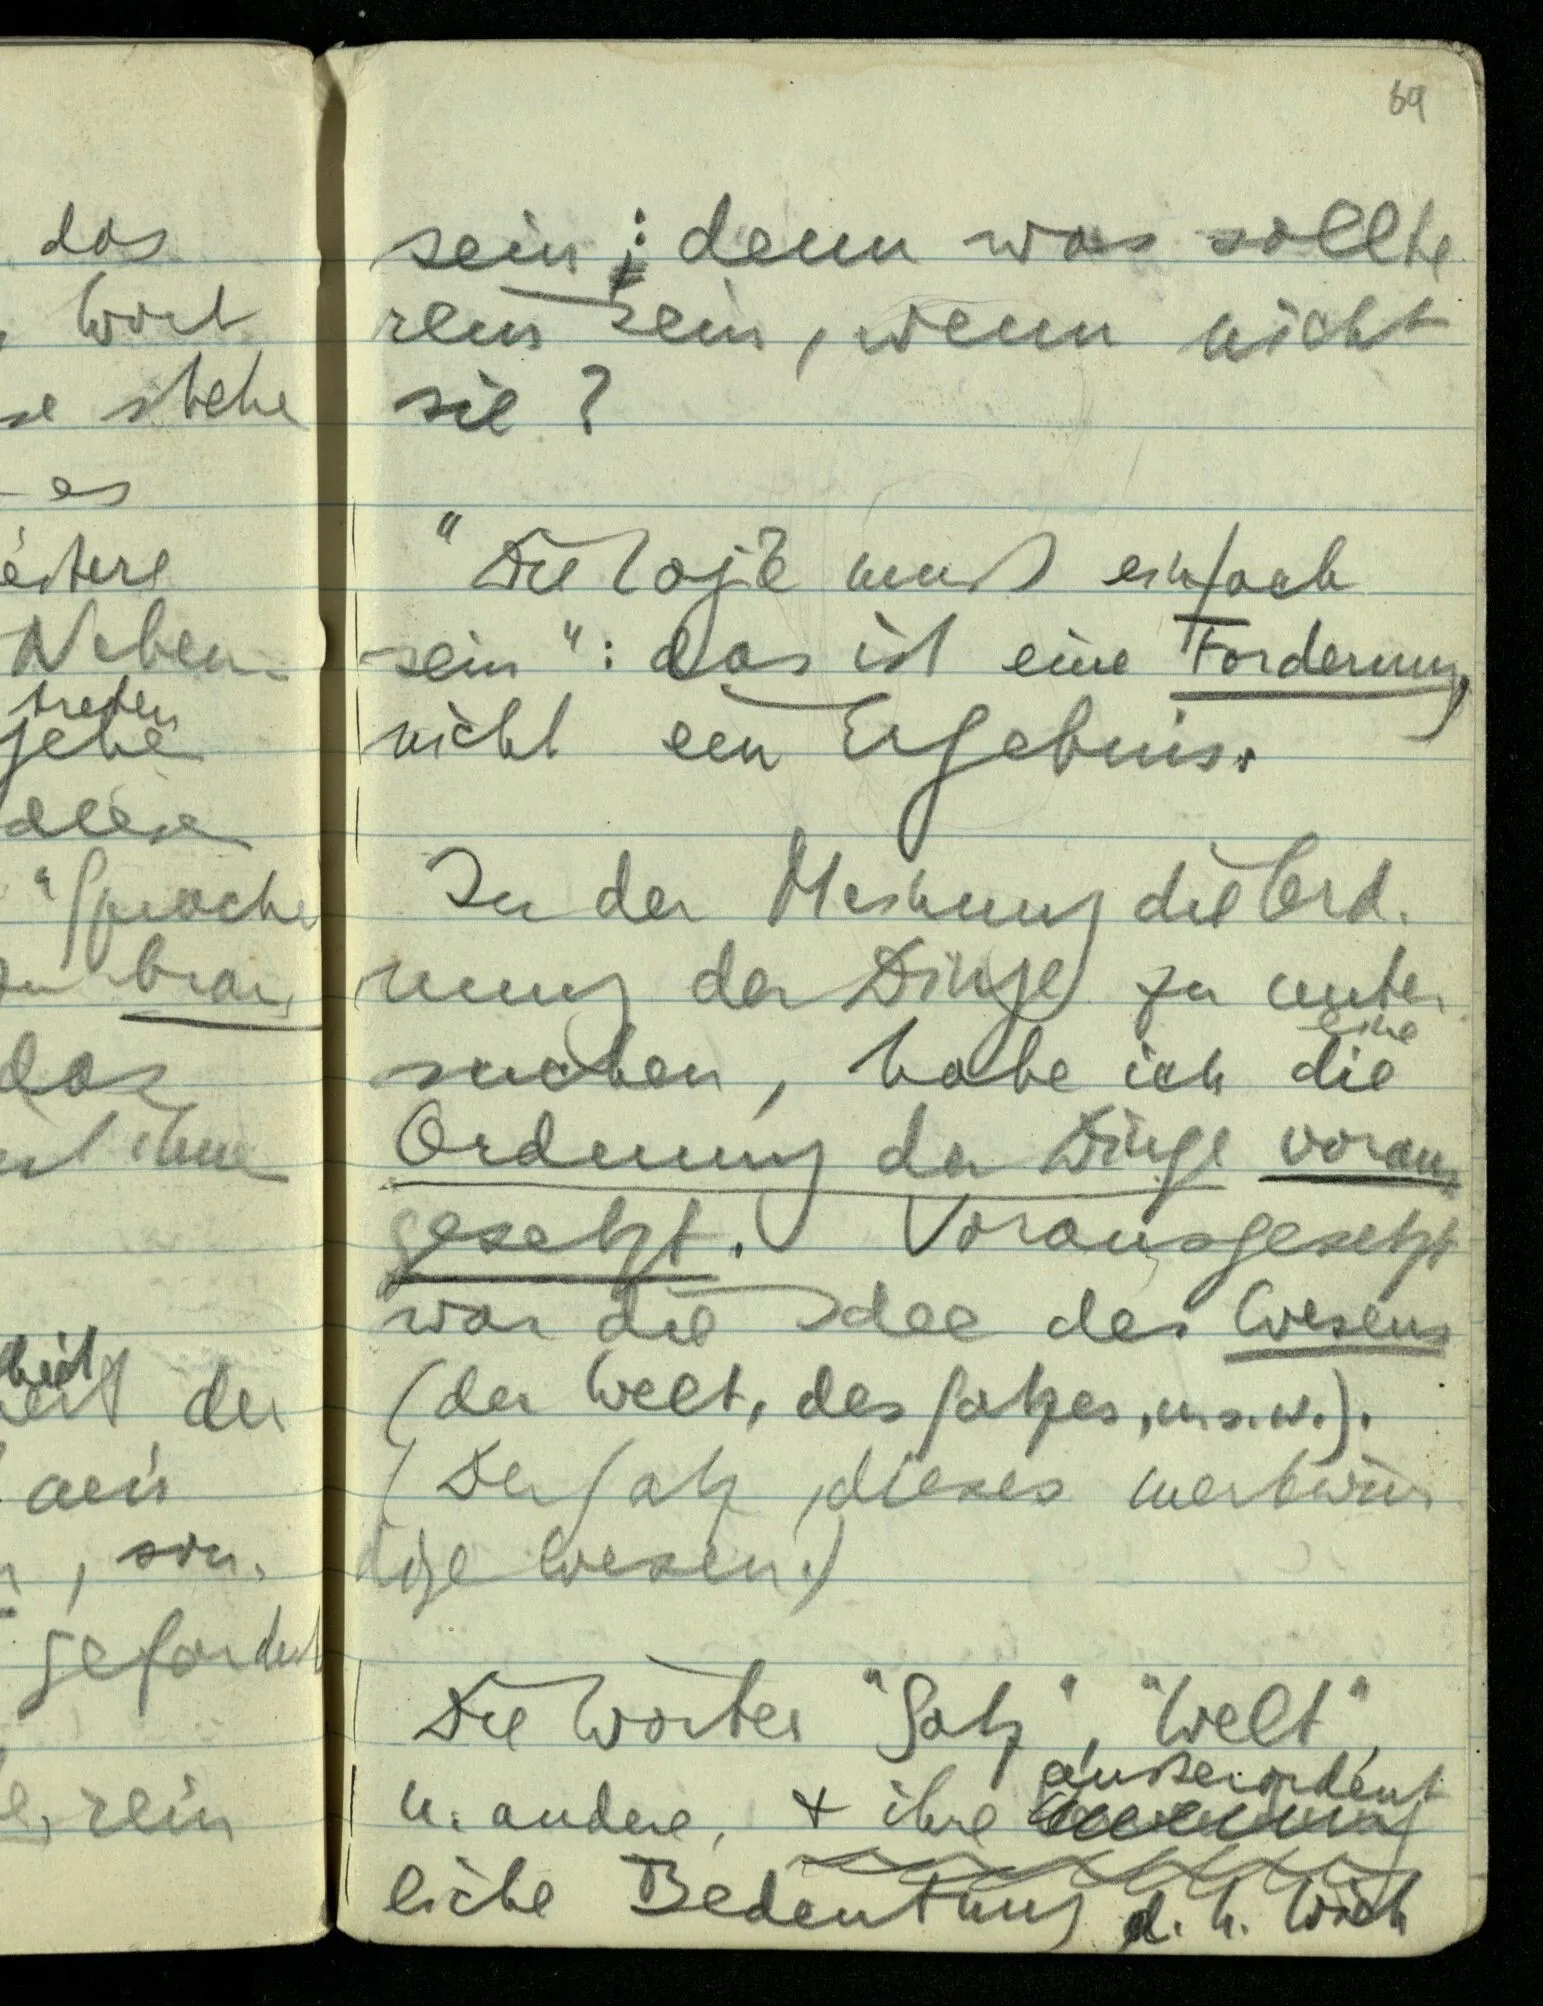 das
Wort
se stehe
– es
eitere
Neben-
treten
gehe
diese
"Sprache
brau
das
ihm
heit
der
sein
, son-
gefordert
rein
69
sein; denn was sollte
rein sein, wenn nicht
sie?
"Die Logik muß einfach
sein": das ist eine Forderung,
nicht ein Ergebnis.
In der Meinung die Ord-
nung der Dinge zu unter
eine
suchen, habe ich die
Ordnung der Dinge voraus
gesetzt. Vorausgesetzt
war die Idee des Wesens
(der Welt, des Satzes, u.s.w.).
(Der Satz, dieses merkwür
dige Wesen.)
Die Wörter "Satz", "Welt",
außerordent
u. andere, + ihre
liche Bedeutung d.h. Wich